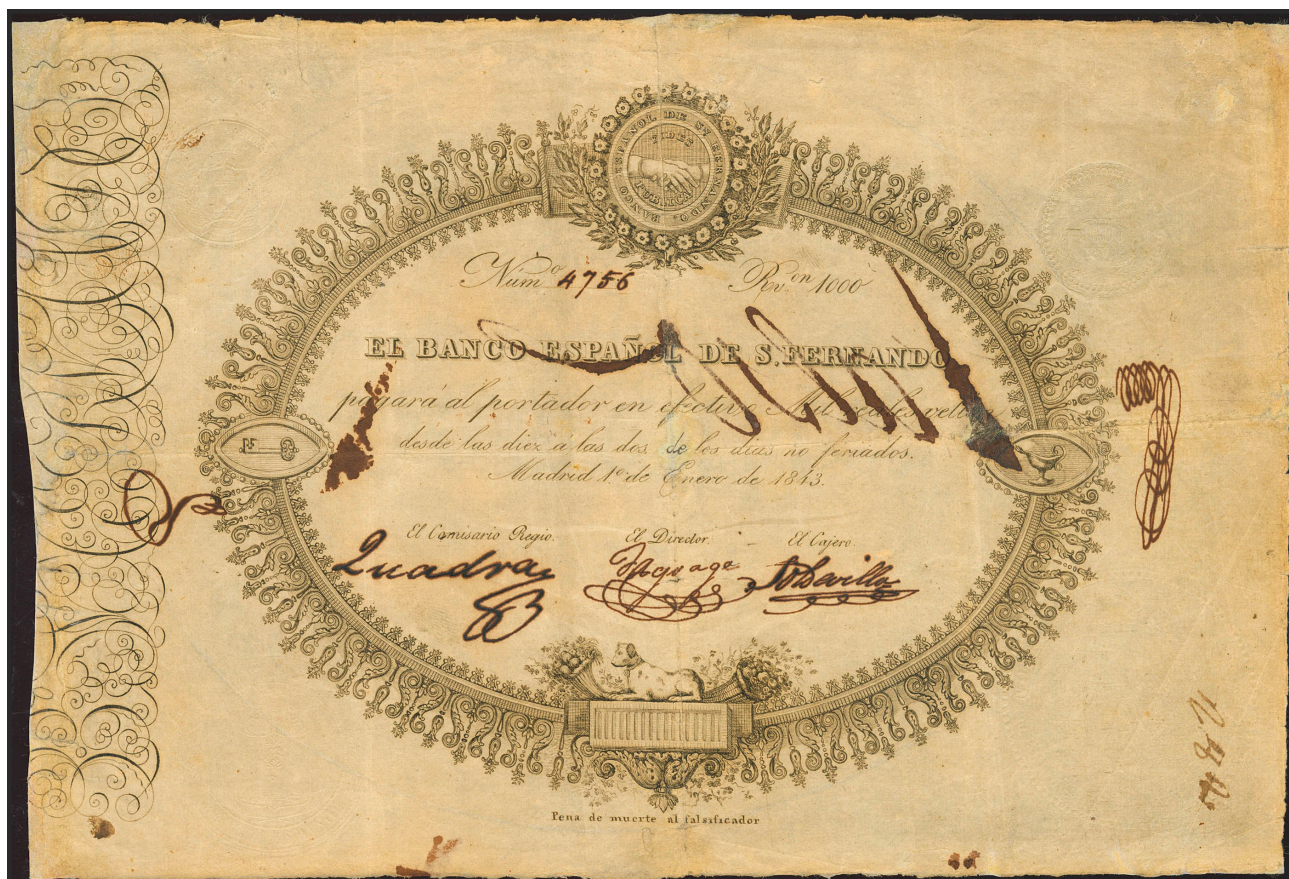 BANCO ESPAÑOL DE Sn. FERNANDO
FIDES
PUBLICA
Núm.o 4756 Rs.on 1000
EL BANCO ESPAÑOL DE S. FERNANDO
pagará al portador en efectivo Mil reales vellon
desde las diez á las dos de los dias no feriados.
Madrid 1º de Enero de 1843.
El Comisario Regio. El Director. El Cajero.
Quadra
Pena de muerte al falsificador